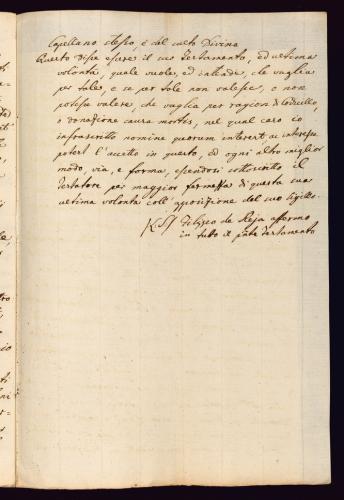 Capellano stesso, e dal culto Divino
Questo disse essere il suo Testamento, ed ultima
volontà, quale vuole, ed intende, che vaglia
per tale, e se per tale non valesse, o non
potesse valere, che vaglia per ragion di Codicillo,
o donazione causa mortis, nel qual caso io
infrascritto nomine quorum interest, ac interesse
poterit l'accetto in questo, ed ogni altro miglior
modo, via, e forma, essendosi sottoscritto il
Testatore per maggior fermezza di questa sua
ultima volontà coll'apposizione del suo sigillo.
Filippo de affermo
in tutto il pnte Testamento